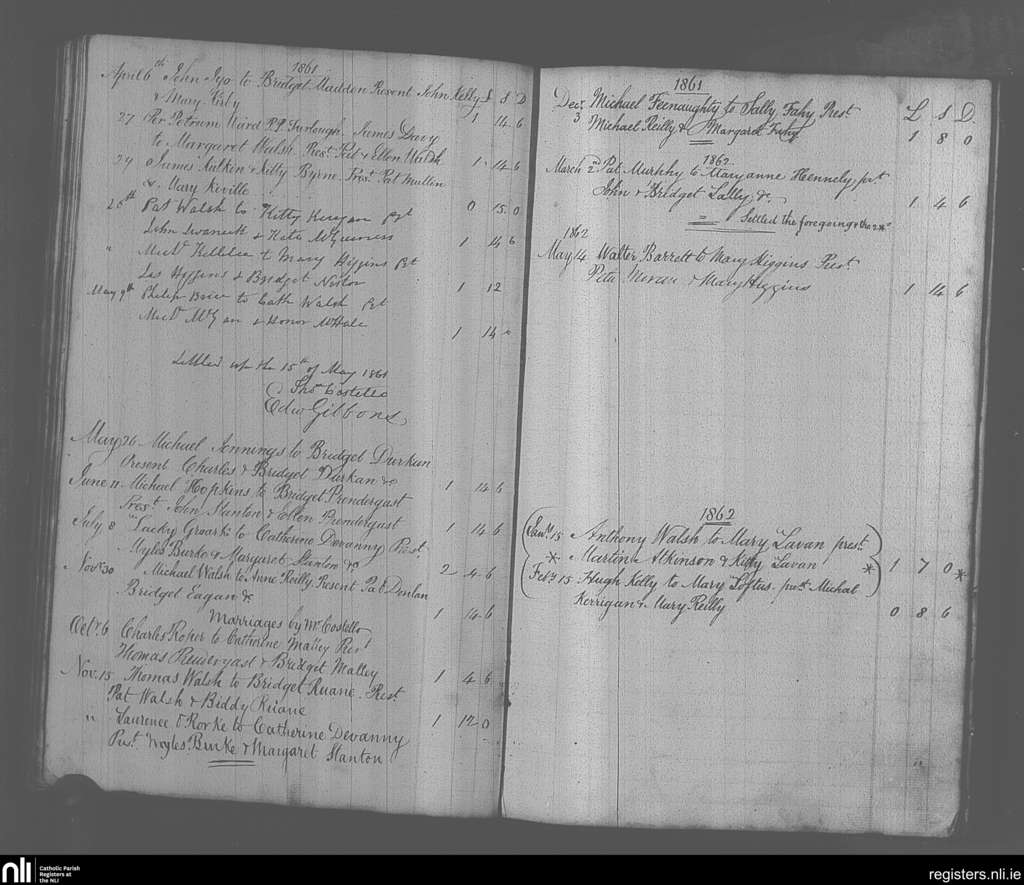 1861
April 6th John Igo to Bridget Madden Present John Kelly £ S D
& Mary Kirby 1 14 6
27 Per Petrum Ward P.P. Turlough James Davy
to Margaret Walsh Prest. Pat & Ellen Walsh 1 14 6
29 James Kilkin & Kitty Byrne Prest. Pat Mullen
& Mary Keville 0 15 0
28th Pat Walsh to Kitty Kerigan Pst
John Swanack & Kate McGuiness 1 14 6
" Michl Killelea to Mary Higgins Pst
Jas Higgins & Bridget Nestor 1 12
May 9th Philip Brice to Cath Walsh Pst
Michl & Honor McHale 1 14
Settled up the 15th of May 1861
Thos Costello
Edw Gibbons
May 26 Michael Jennings to Bridget Durkan
Present Charles & Bridget Durkan &c 1 14 6
June 11 Michael Hopkins to Bridget Prendergast
Prest. John Stanton & Ellen Prendergast 1 14 6
July 8 Lacky Groark to Catherine Devanny Prest.
Myles Burke & Margaret Stanton &c 2 4 6
Novr. 30 Michael Walsh to Anne Reilly Present Pat Donlan
Bridget Eagan &c 1 14 6
Marriages by Mr. Costello
Octr. 6 Charles Roher to Catherine Malley Prest
Thomas Prendergast & Bridget Malley 1 4 6
Nov. 15 Thomas Walsh to Bridget Ruane Prest.
Pat Walsh & Biddy Ruane 1 12 0
" Laurence O Rorke to Catherine Devanny
Prest. Myles Burke & Margaret Stanton
1861
Decr. 3 Michael Feenaughty to Sally Fahy Prest. L S D
Michael Reilly & Margaret Fahy 1 8 0
1862
March 2nd Pat Murphy to Maryanne Hennely prt
John & Bridget Lally &c. 1 4 6
Settled the foregoing & the 2 *
1862
May 14 Walter Barrett to Mary Higgins Prest.
Peter Moran & Mary Higgins 1 14 6
1862
Jany. 15 Anthony Walsh to Mary Lavan prest.
* Martin Atkinson & Kitty Lavan * 1 7 0 *
Feby 15 Hugh Kelly to Mary Loftus prest Michal
Kerrigan & Mary Reilly 0 8 6
nli Catholic Parish
Registers at
the NLI
registers.nli.ie